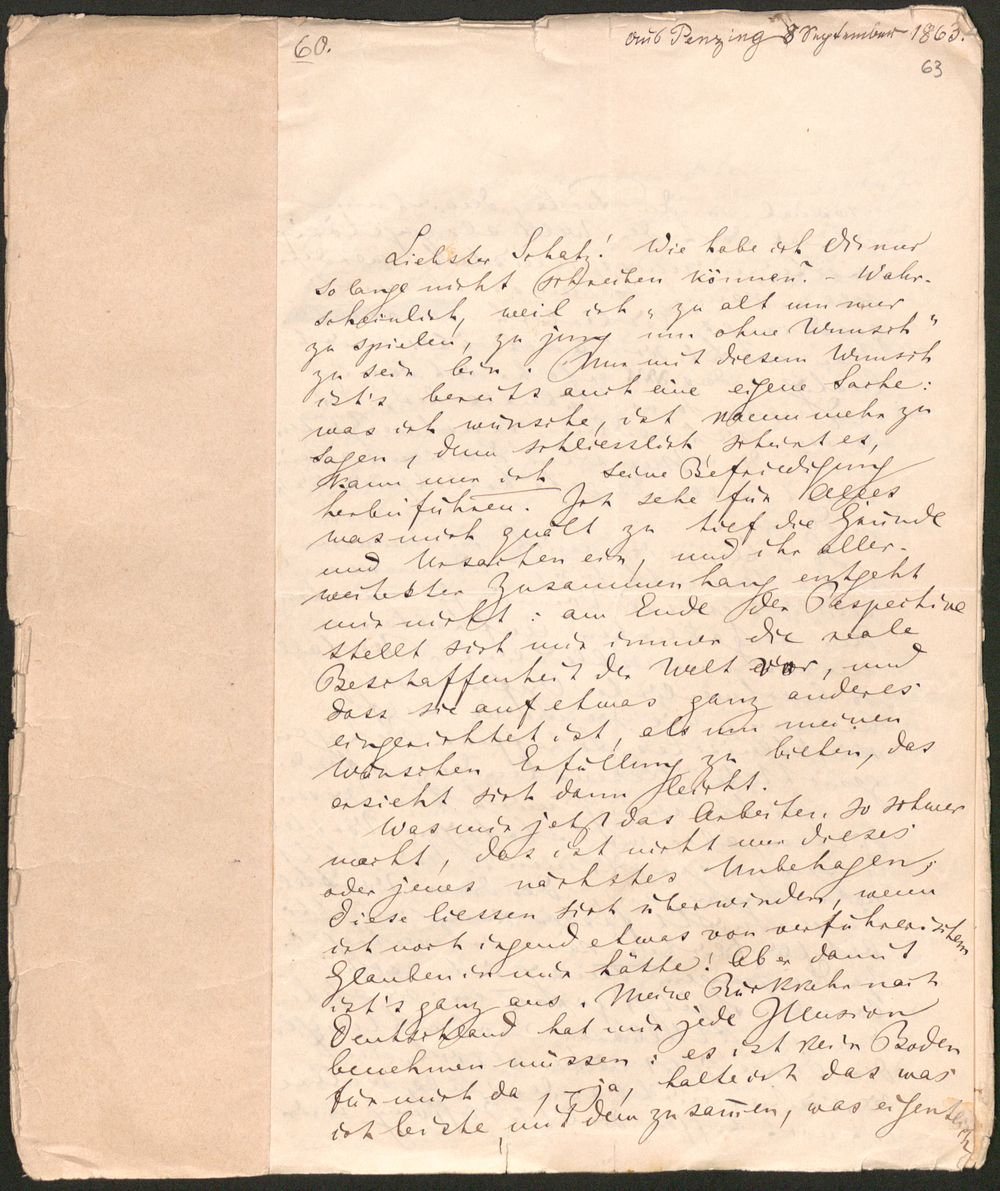 60.
aus Penzing 8 September 1863.
63
Liebster Schatz! Wie habe ich Dir nur
so lange nicht schreiben können? – Wahr-
scheinlich, weil ich „zu alt um nur
zu spielen, zu jung um ohne Wunsch"
zu sein bin. Nun mit diesem Wunsch
ist's bereits auch eine eigene Sache:
was ich wünsche, ist kaum mehr zu
sagen, denn schliesslich scheint es,
kann nur ich seine Befriedigung
herbeiführen. Ich sehe für Alles
was mich quält zu tief die Gründe
und Ursachen ein, und ihr aller-
weitester Zusammenhang entgeht
mir nicht: am Ende der Perspective
stellt sich mir immer die reale
Beschaffenheit der Welt vor, und
dass sie auf etwas ganz anderes
eingerichtet ist, als um meinen
Wünschen Erfüllung zu bieten, das
ersieht sich dann leicht.
Was mir jetzt das Arbeiten so schwer
macht, das ist nicht nur dieses
oder jenes nächstes Unbehagen;
diese liessen sich überwinden, wenn
ich noch irgend etwas von verführerischem
Glauben in mir hätte! Aber damit
ist's ganz aus. Meine Rückkehr nach
Deutschland hat mir jede Illusion
benehmen müssen: es ist kein Boden
für mich da, – ja, halte ich das was
ich leiste, mit dem zusam̅en, was eigentlich